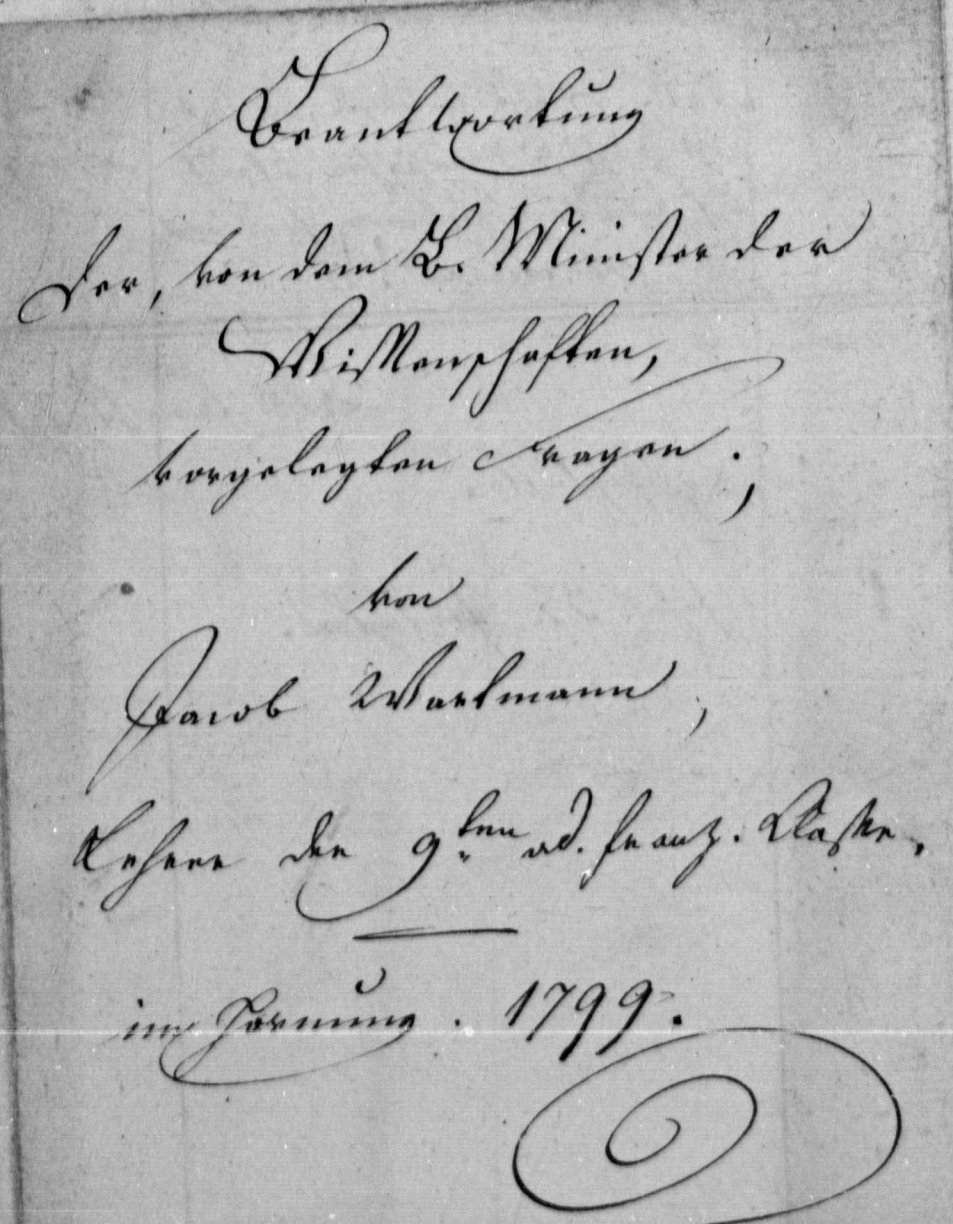 Beantwortung
der, von dem B. Minister der
Wissenschaften,
vorgelegten Fragen;
von
Jacob Wartmann,
Lehrer der 9.ten od. franz. Classe.
im Hornung. 1799.